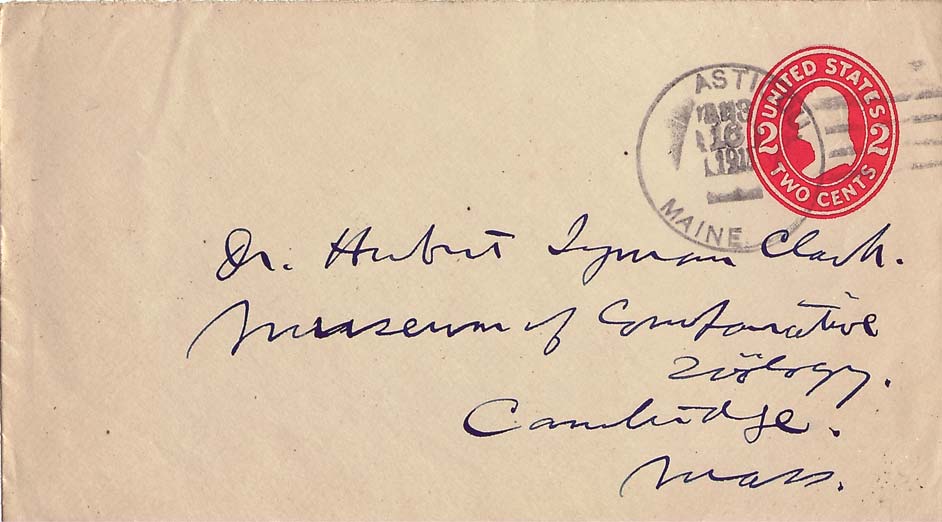 UNITED STATES
2 2
TWO CENTS
ASTI
16
191
MAINE
Dr. Hubert Lyman Clark.
Museum of Comparative
Zoölogy.
Cambridge.
Mass.